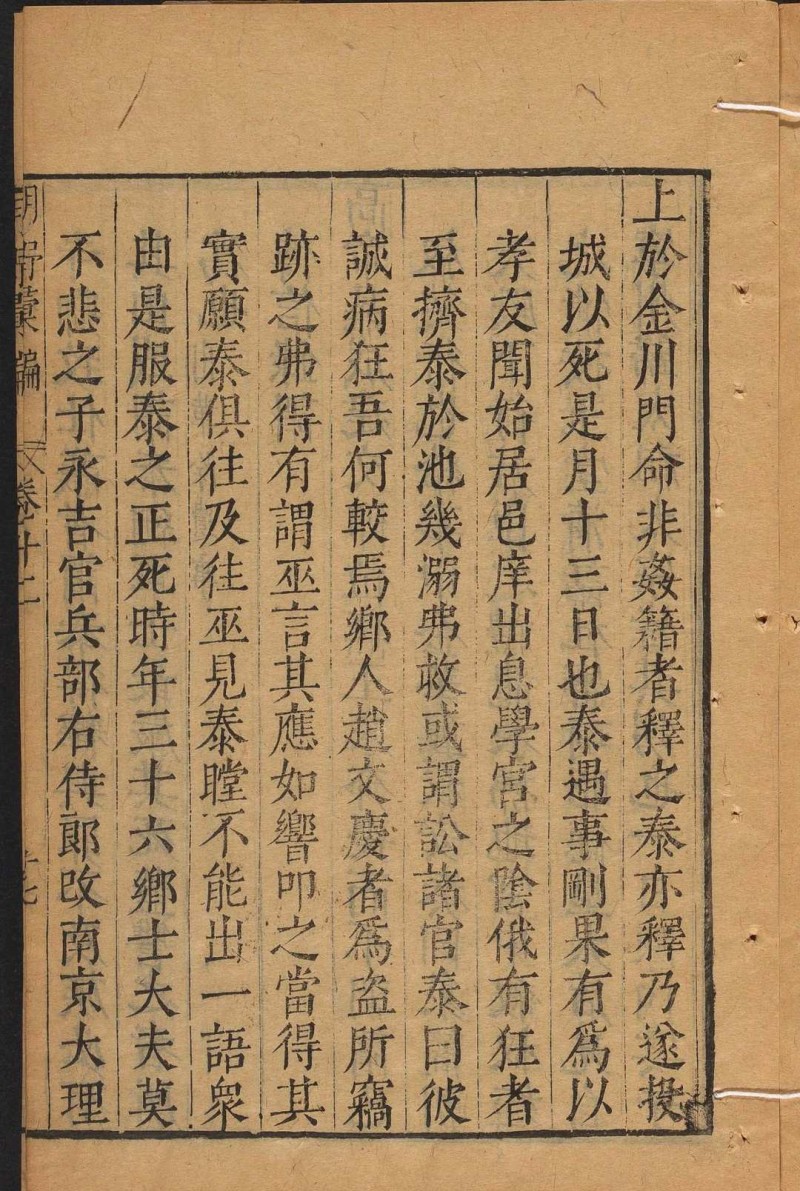 上於金川門命非姦籍者釋之泰亦釋乃遂投
城以死是月十三日也泰遇事剛果有爲以
孝友聞始居邑庠出息學宮之陰俄有狂者
至擠泰於池幾溺弗救或謂訟諸官泰曰彼
誠病狂吾何較焉鄉人趙文慶者爲盜所竊
跡之弗得有謂巫言其應如響叩之當得其
實願泰俱往及往巫見泰瞠不能出一語衆
由是服泰之正死時年三十六鄉士大夫莫
不悲之子永吉官兵部右侍郎改南京大理
文卷十二
十七